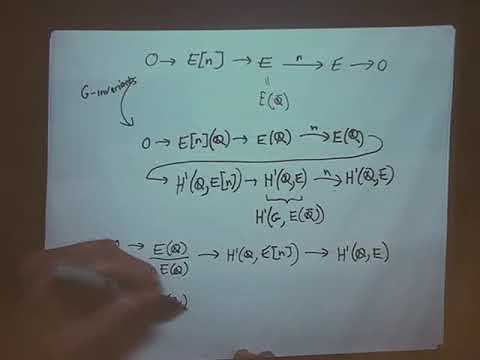 0 → E[n] → E —n→ E → 0
G-invariants
=
E(ℚ̄)
0 → E[n](ℚ) → E(ℚ) —n→ E(ℚ)
→ H¹(ℚ,E[n]) → H¹(ℚ,E) —n→ H¹(ℚ,E)
H¹(G, E(ℚ̄))
→ E(ℚ) / E(ℚ) → H¹(ℚ,E[n]) → H¹(ℚ,E)